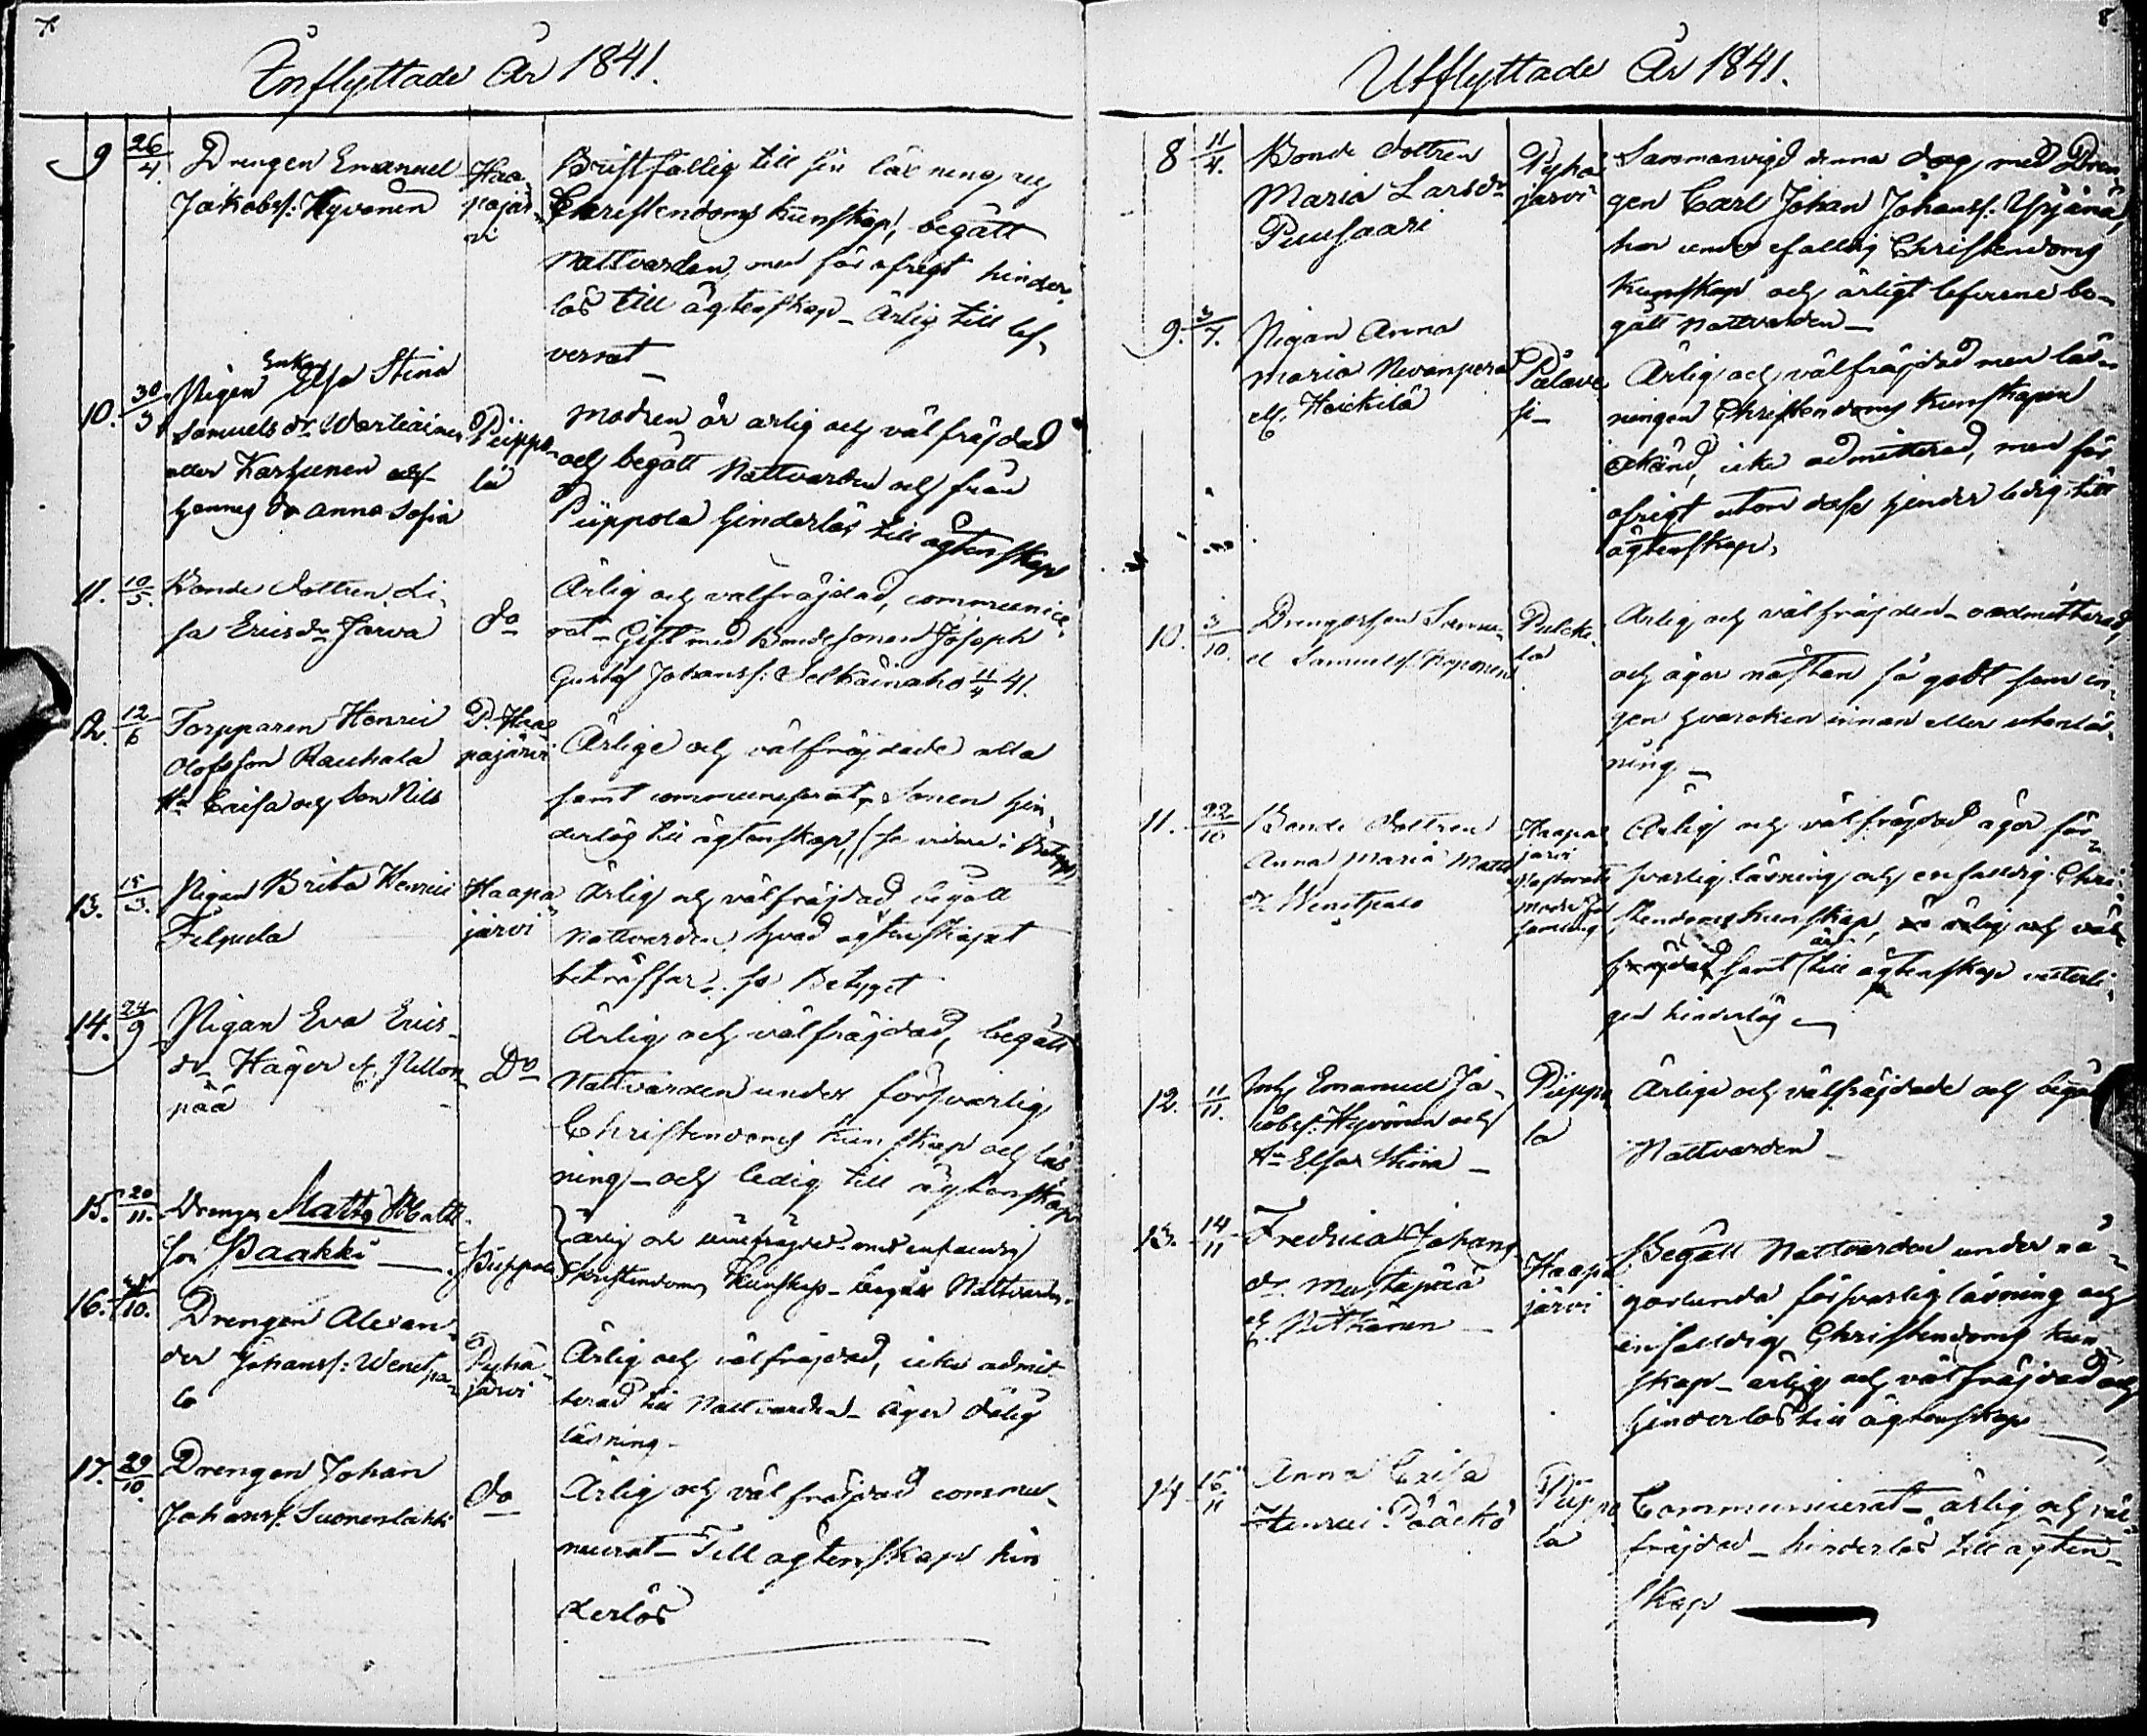 7
Inflyttade År 1841.
9 26/4. Drengen Emanuel
Jakobss: Hyvönen
Haa-
pajär-
vi
Bristfällig till sin läsning och
Christendoms kunskap, begått
Nattvarden, men för öfrigt hinder-
lös till ägtenskap - Ärlig till lef-
vernet -
10. 30/3 Pigan Enkan Elsa Stina
Samuels dr. Wartiainen
eller Karhunen och
hennes dr Anna Sofia
Piippo-
la
Modren är ärlig och väl fräjdad
och begått Nattvarden och från
Piippola hinderlös till ägtenskap
11. 10/5. Bonde dottren Li-
sa Ericsdr. Järvä
do
Ärlig och välfräjdad, communice-
rat - Gift med Bondesonen Joseph
Gustaf Johanss: Selkäinaho 11/4 41.
12. 12/6 Torpparen Henric
Olofsson Rauhala
Hu Caisa och Son Nils
P. Haa-
pajärvi
Ärlige och välfräjdade alla
samt communicerat, Sonen hin-
derlös till ägtenskap, (se vidare i Betyget)
13. 15/3. Pigan Brita Henrics
Filpula
Haapa-
järvi
Ärlig och välfräjdad begått
Nattvarden, hvad ägtenskapet
beträffar, se Betyget
14. 24/9 Pigan Eva Erics-
dr Häger
pää
Do
Ärlig och välfräjdad, begått
Nattvarden under försvarlig
Christendoms kunskap och läs-
ning - och ledig till ägtenskap
15. 20/11. Drengen Matts Matts-
son Paakki
Piippola
ärlig och välfräjdad med enfaldig
Christendoms kunskap - begått Nattvarden.
16. /10. Drengen Alexan-
der Johanss: Wenetpa-
lo
Pyhä-
järvi
Ärlig och välfräjdad, icke admit-
terad till Nattvarden - äger dålig
läsning -
17. 29/10. Drengen Johan
Johanss. Suonenlahti
do
Ärlig och välfräjdad commu-
nicerat - Till ägtenskap hin
derlös
8
Utflyttade År 1841.
8 11/4. Bonde dottren
Maria Larsdr
Puusaari
Pyhä
järvi
Sammanvigd denna dag med Dren-
gen Carl Johan Johanss: Yrjänä,
har under efallig Christendoms
kunskap och ärligt leferne be-
gått Nattvarden -
9. 3/7. Pigan Anna
Maria Nevanperä
ell. Haickilä
Pielave-
si -
Ärlig och välfräjdad men läs-
ningen Christendoms kunskapen
okänd, icke admitterad, men för
öfrigt utom dess hinder ledig till
ägtenskap.
10. 3/10. Drengessen Samu-
el Samuelss. Koponen
Pulcki-
la
Ärlig och välfräjdad - oadmitterad,
och äger nästan så godt som in-
gen hvarcken innan eller utanläs-
ning -
11. 22/10 Bonde dottren
Anna Maria Matts
dr Wenetpalo
Haapa-
järvi
Pastorats
Moder för
samling
Ärlig och välfräjdad äger för-
svarlig läsning och enfaldig Chri-
stendoms kunskap, är ärlig och väl-
fräjdad samt är till ägtenskap veterli-
gen hinderlös
12. 11/11. Inh. Emanuel Ja-
cobss. Hyvönen och
Hu Elsa Stina -
Piippo
la
Ärlige och välfräjdade och begått
Nattvarden -
13. 14/11 Fredrica Johans
dr. Mustapää
ell. Pitkänen -
Haapa
järvi
Begått Nattvarden under nå-
gorlunda försvarlig läsning och
enfaldig Christendoms kun-
skap - ärlig och välfräjdad och
hinderlös till ägtenskap
14 15/11 Anna Caisa
Henrici Pääckö
Piippo
la
Communicerat - ärlig och väl-
fräjdad - hinderlös till ägten-
skap